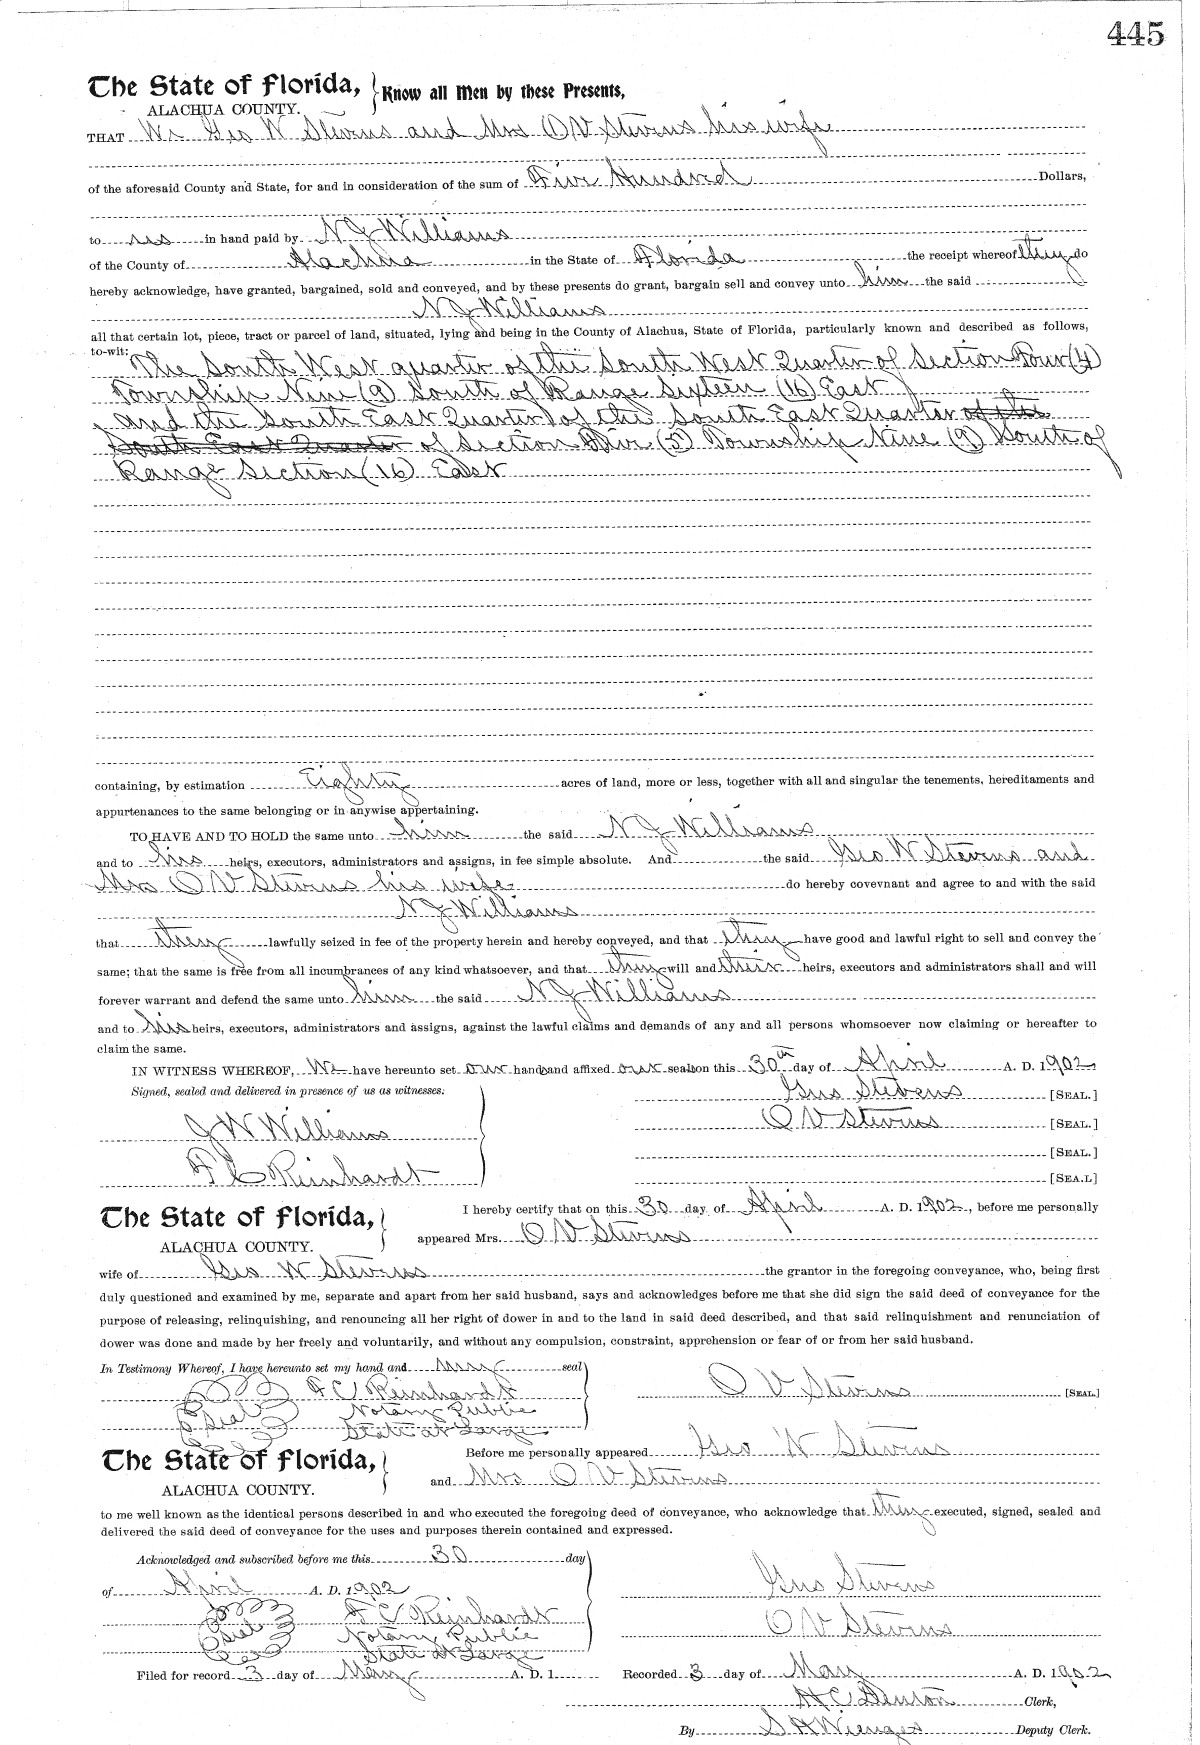 445
The State of Florida, Know all Men by these Presents,
ALACHUA COUNTY.
THAT We Geo W Stevens and Mrs O V Stevens his wife
of the aforesaid County and State, for and in consideration of the sum of Five Hundred Dollars,
to us in hand paid by N J Williams
of the County of Alachua in the State of Florida the receipt whereof they do
hereby acknowledge, have granted, bargained, sold and conveyed, and by these presents do grant, bargain sell and convey unto him the said
N J Williams
all that certain lot, piece, tract or parcel of land, situated, lying and being in the County of Alachua, State of Florida, particularly known and described as follows,
to-wit: The South West quarter of the South West Quarter of Section Four (4)
Township Nine (9) South of Range Sixteen (16) East
and the South East Quarter of the South East Quarter of the
South East Quarter of Section Five (5) Township Nine (9) South of
Range Section (16) East
containing, by estimation Eighty acres of land, more or less, together with all and singular the tenements, hereditaments and
appurtenances to the same belonging or in anywise appertaining.
TO HAVE AND TO HOLD the same unto him the said N J Williams
and to his heirs, executors, administrators and assigns, in fee simple absolute. And the said Geo W Stevens and
Mrs O V Stevens his wife do hereby covevnant and agree to and with the said
N J Williams
that they lawfully seized in fee of the property herein and hereby conveyed, and that they have good and lawful right to sell and convey the
same; that the same is free from all incumbrances of any kind whatsoever, and that they will and their heirs, executors and administrators shall and will
forever warrant and defend the same unto him the said N J Williams
and to his heirs, executors, administrators and assigns, against the lawful claims and demands of any and all persons whomsoever now claiming or hereafter to
claim the same.
IN WITNESS WHEREOF, We have hereunto set our hand and affixed our seal on this 30th day of April A. D. 1902
Signed, sealed and delivered in presence of us as witnesses: Geo Stevens [SEAL.]
J W Williams O V Stevens [SEAL.]
[SEAL.]
F C Reinhardt [SEA.L]
The State of Florida, I hereby certify that on this 30 day of April A. D. 1902, before me personally
ALACHUA COUNTY. appeared Mrs. O V Stevens
wife of Geo W Stevens the grantor in the foregoing conveyance, who, being first
duly questioned and examined by me, separate and apart from her said husband, says and acknowledges before me that she did sign the said deed of conveyance for the
purpose of releasing, relinquishing, and renouncing all her right of dower in and to the land in said deed described, and that said relinquishment and renunciation of
dower was done and made by her freely and voluntarily, and without any compulsion, constraint, apprehension or fear of or from her said husband.
In Testimony Whereof, I have hereunto set my hand and my seal
F C Reinhardt O V Stevens [SEAL.]
Seal Notary Public
State at Large
The State of Florida, Before me personally appeared Geo W Stevens
ALACHUA COUNTY. and Mrs O V Stevens
to me well known as the identical persons described in and who executed the foregoing deed of conveyance, who acknowledge that they executed, signed, sealed and
delivered the said deed of conveyance for the uses and purposes therein contained and expressed.
Acknowledged and subscribed before me this 30 day
of April A. D. 1902 Geo Stevens
F C Reinhardt
Seal Notary Public O V Stevens
State at Large
Filed for record 3 day of May A. D. 1 Recorded 3 day of May A. D. 1902
H C Denton Clerk,
By S H Wienges Deputy Clerk.